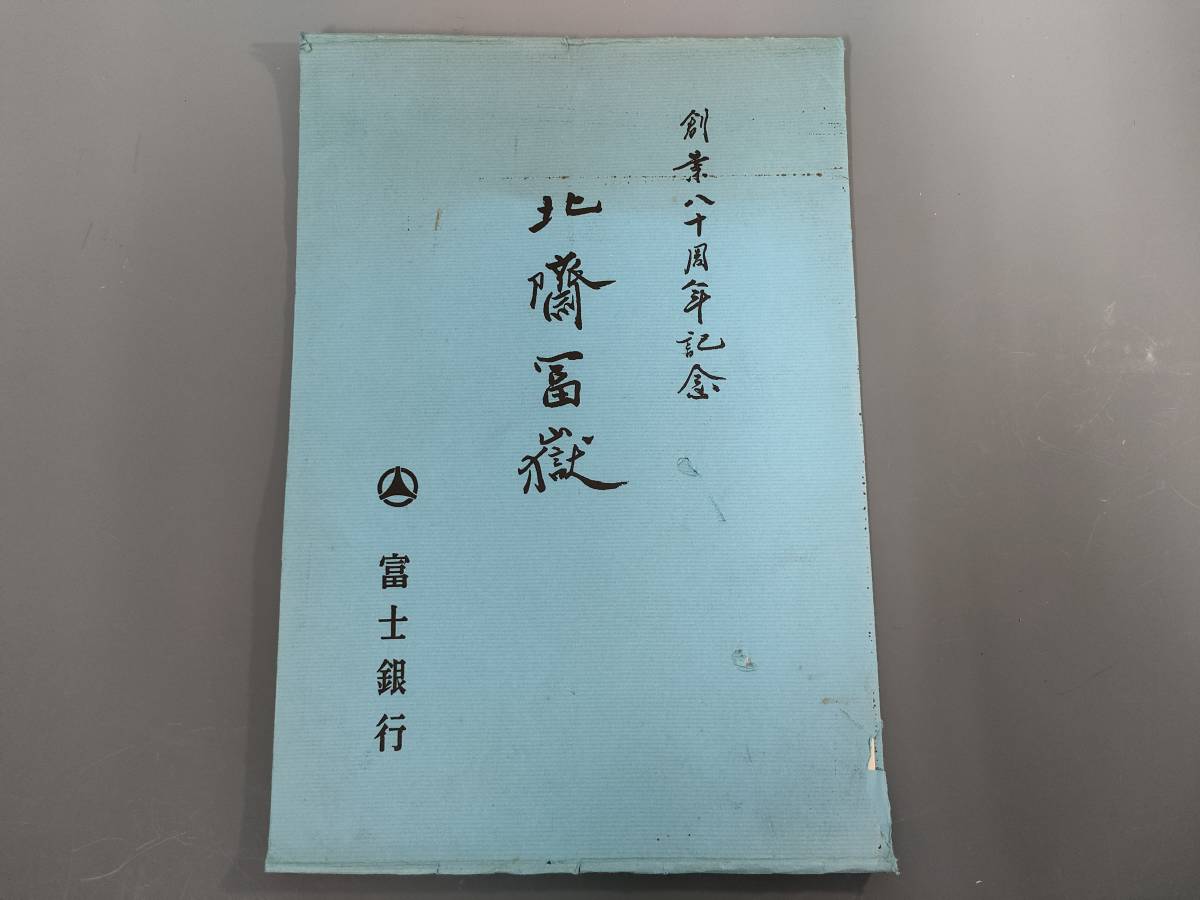 創業八十周年記念
北隮冨嶽
富士銀行